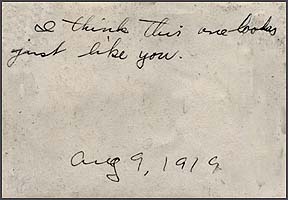 I think this one looks
just like you.
Aug 9, 1919